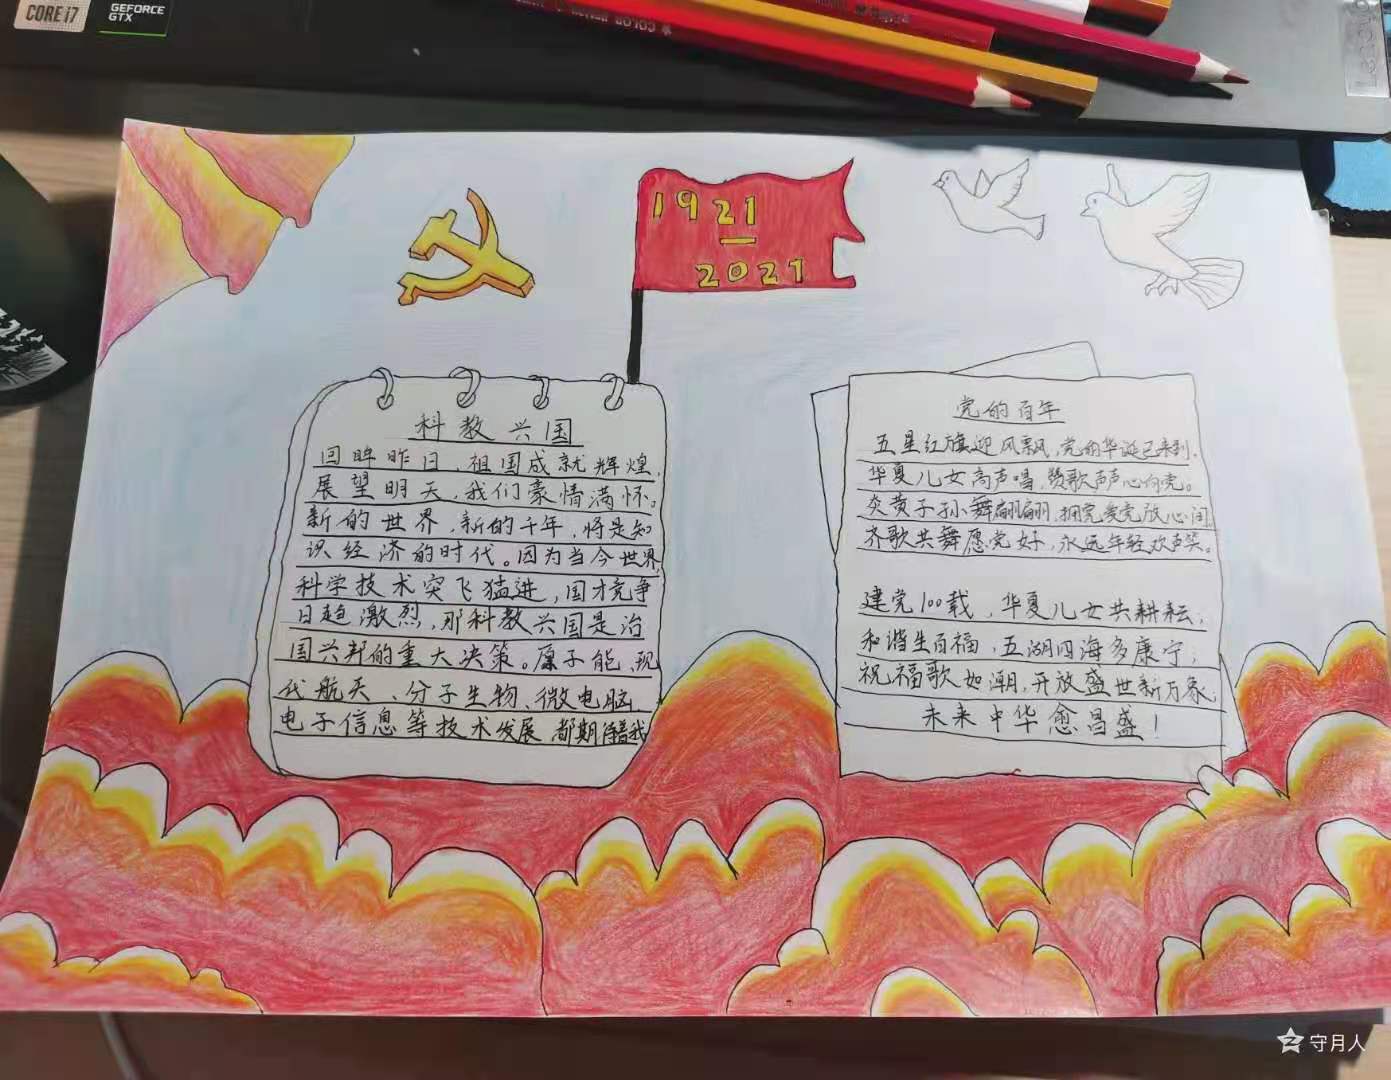 CORE i7
GEFORCE
GTX
COLOR
1921
—
2021
科教兴国
回眸昨日，祖国成就辉煌，
展望明天，我们豪情满怀。
新的世界，新的千年，将是知
识经济的时代。因为当今世界，
科学技术突飞猛进，国才竞争
日趋激烈，那科教兴国是治
国兴邦的重大决策。原子能、现
代航天、分子生物、微电脑
电子信息等技术发展，都期待着我
党的百年
五星红旗迎风飘，党的华诞已来到。
华夏儿女高声唱，赞歌声声心向党。
炎黄子孙舞翩翩，拥党爱党放心间
齐歌共舞愿党好，永远年轻欢声笑。
建党100载，华夏儿女共耕耘；
和谐生百福，五湖四海多康宁；
祝福歌如潮，开放盛世新万象，
未来中华愈昌盛！
守月人